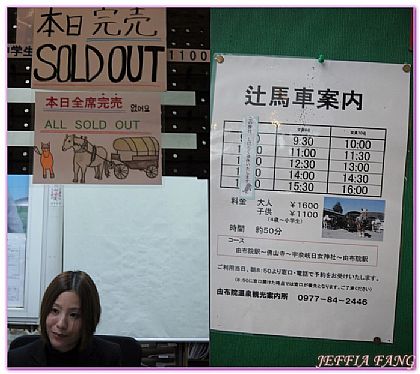 本日完売
SOLD OUT
1100
本日全席完売 없어요
ALL SOLD OUT
辻馬車案内
9:30 10:00
11:00 11:30
12:00 13:30
14:00 14:30
15:30 16:00
料金 大人 ¥1600
子供 ¥1100
(4歳~小学生)
時間 約50分
コース
由布院駅~佛山寺~宇奈岐日女神社~由布院駅
ご利用当日、朝8:50より窓口・電話で予約をお受けいたします。
由布院温泉観光案内所 0977-84-2446
JEFFIA FANG